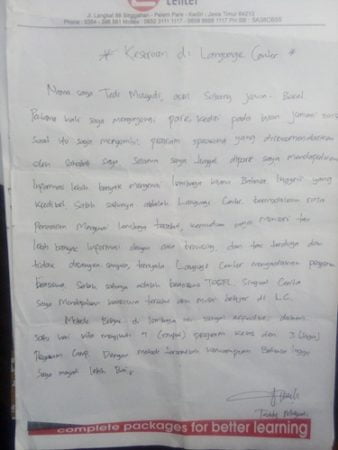 Center
Jl. Langkat 88 Singgahan - Pelem Pare - Kediri, Jawa Timur 64213
Keseruan di Language Center
Nama saya Tedi Mulyadi, asal Serang Jawa - Barat
Pertama kali saya mengunjungi pare kediri pada
saat itu saya mengambil program speaking yang direkomendasikan
oleh sahabat saya selama saya tinggal dipare saya mendapatkan
Informasi lebih banyak mengenai lembaga kursus Bahasa Inggris yang
Kredibel salah satunya adalah Language Center bermodalkan rasa
Penasaran Mengenai Lembaga tersebut, kemudian saya mencari tau
lebih banyak informasi dengan cara browsing, dan tak terduga dan
tidak disangka-sangka, ternyata Language Center mengadakan program
beasiswa, salah satunya adalah beasiswa TOEFL
Saya Mendapatkan beasiswa tersebut dan mulai belajar di L.C.
Metode Belajar di lembaga ini sangat dalam
satu hari kita mengikuti 4 (empat) program kelas dan 3 (tiga)
Program Camp. Dengan metode kemampuan Bahasa Inggris
Saya menjadi lebih Baik.
Teddy Mulyadi
complete packages for better learning